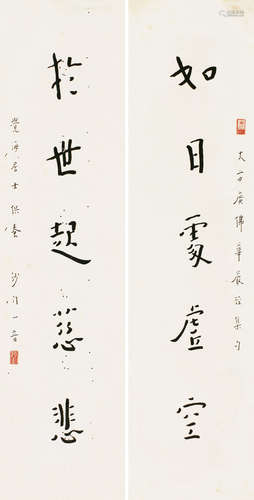 大方廣佛華嚴經集句
如日處虛空
於世起慈悲
覺海居士供養 沙門一音